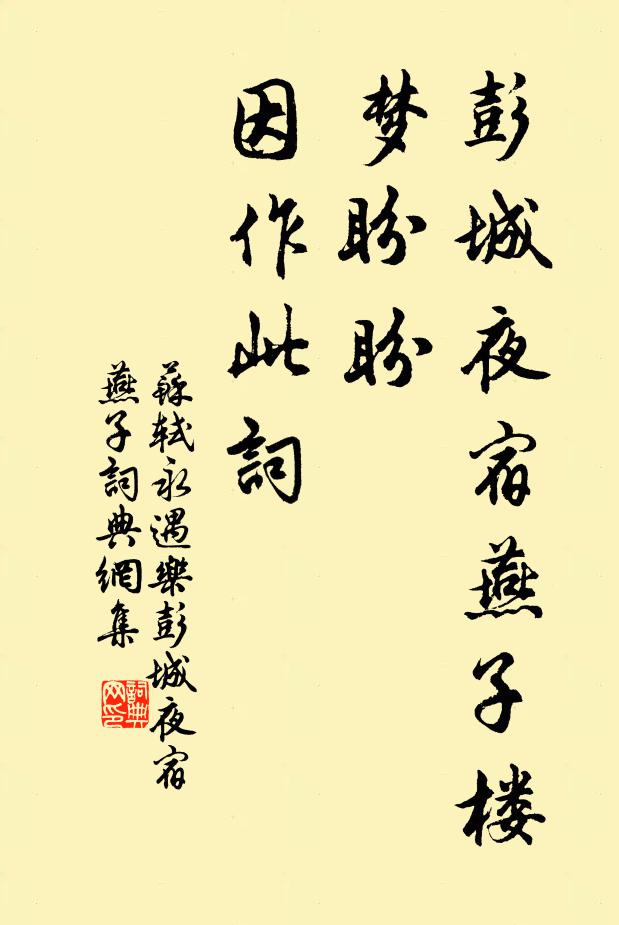 彭城夜宿燕子楼
梦盼盼
因作此詞
蘇轼永遇樂彭城夜宿
燕子詞典網集
詞典
网印